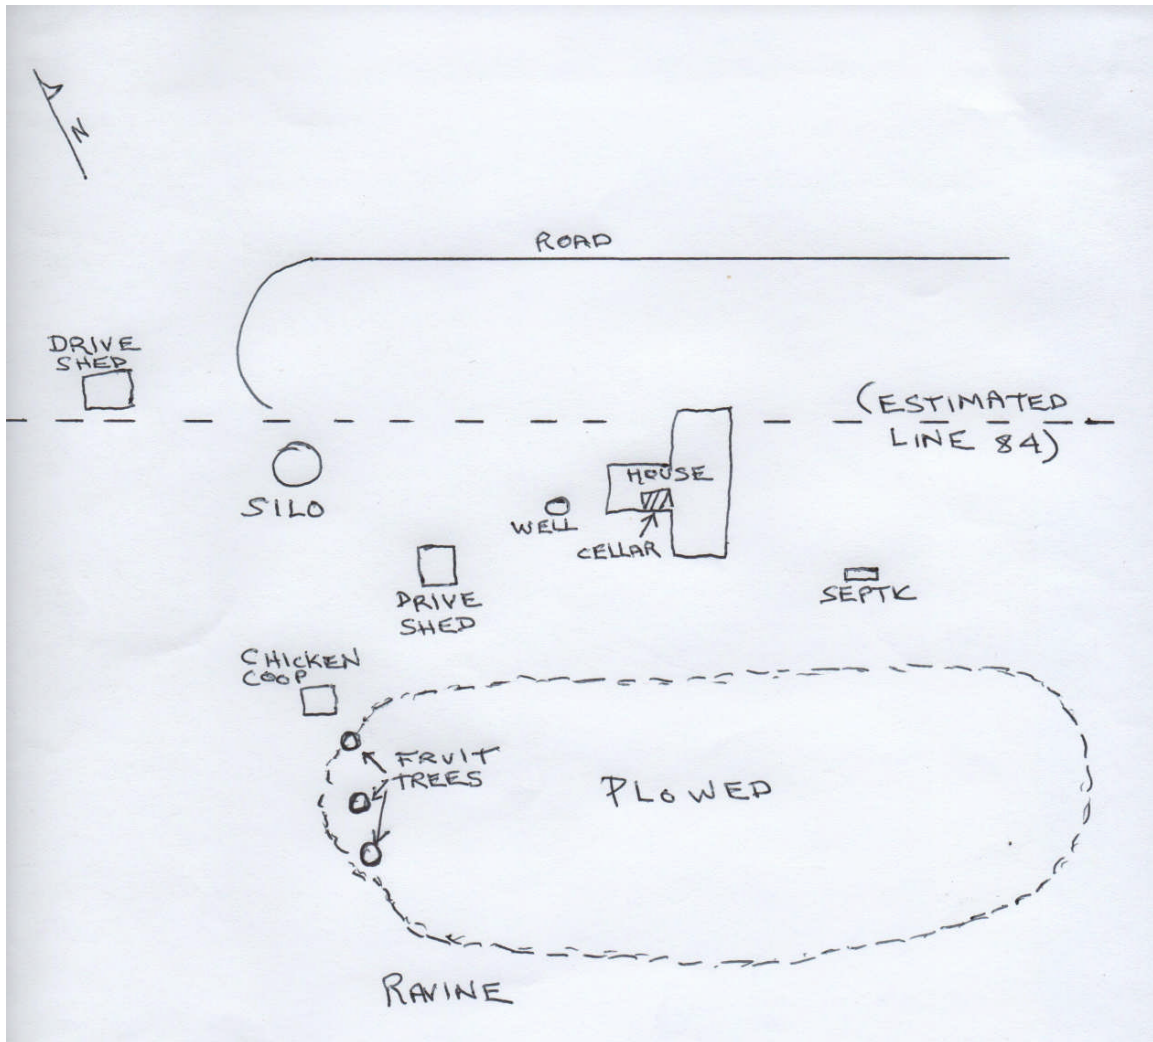 N
ROAD
DRIVE
SHED
(ESTIMATED
LINE 84)
HOUSE
SILO
WELL
CELLAR
SEPTIC
DRIVE
SHED
CHICKEN
COOP
FRUIT
TREES
PLOWED
RAVINE